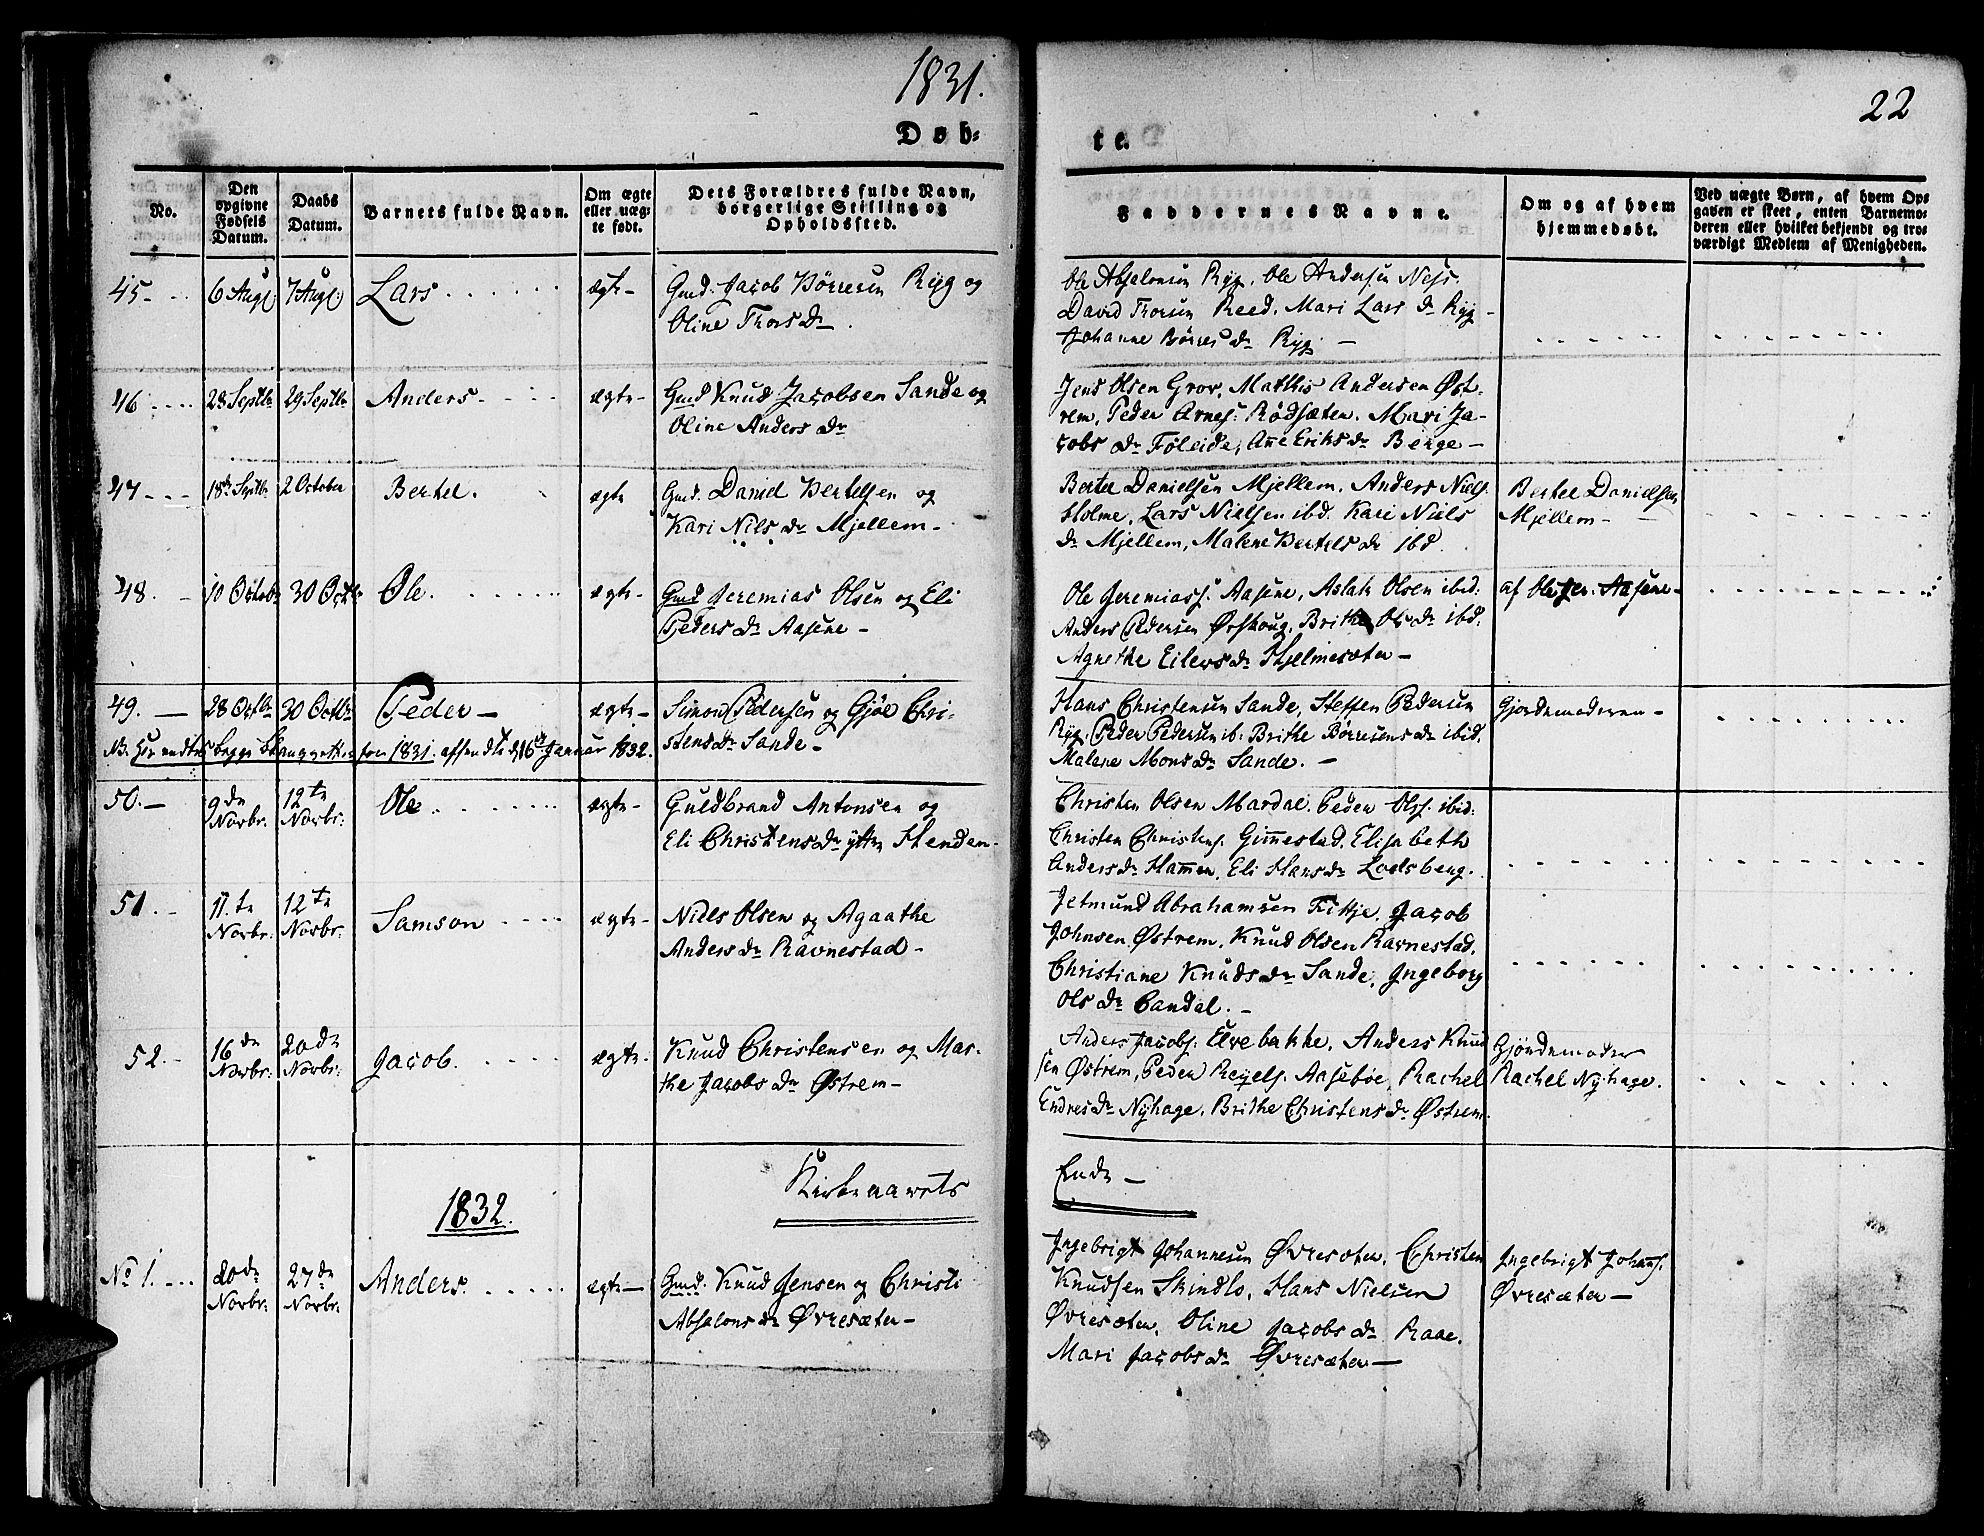 1831.
22
Døb-
te.
No.
Den opgivne Fødsels Datum.
Daabs Datum.
Barnets fulde Navn.
Om ægte eller uægte født.
Dets Forældres fulde Navn, borgerlige Stilling og Opholdssted.
Faddernes Navne.
Om og af hvem hjemmedøbt.
Ved uægte Børn, af hvem Opgaven er skeet, enten Barnemoderen eller hvilket bekjendt og troværdigt Medlem af Menigheden.
45 6 Aug 7 Aug Lars ægte
Gmd. Jacob Børresen Ryg og
Oline Thors Dr.
Ole Abselonsen Ryg, Ole Andersen Ness.
David Thorsen Reed. Mari Lars Dr Ryg
Johanne Børres Dr Ryg
46 28 Septbr 29 Septbr Anders ægte
Gmd Knud Jacobsen Sande og
Oline Anders Dr
Jens Olsen Grov, Matthis Andersen Øst-
rem, Peder Arnes: Rødsæten. Mari Ja-
cobs Dr Føleide, Ane Eriks Dr Berge
47 18de Septbr 2 October Bertel. ægte
Gmd. Daniel Bertelsen og
Kari Nils Dr Mjellem
Bertel Danielsen Mjellem, Anders Niels.
Holme, Lars Nielsen ibd. Kari Niels
Dr Mjellem, Malene Bertels Dr ibd.
Bertel Danielsen
Mjellem
48. 10 Octob 30 Octbr Ole. ægte
Gmd Jeremias Olsen og Eli
Peders Dr Aasene
Ole Jeremiass. Aasene, Aslak Olsen ibid:
Anders Pedersen Ørskoug, Brithe Ols Dr ibd.
Agnethe Eilers Dr Hjelmesæter
af Ole Jer: Aasene
49. 28 Octbr 30 Octbr Peder ægte
Simon Pedersen og Gjøe Chri-
stens Dr Sande
NB. for 1831. 16 Januar 1832.
Hans Christensen Sande, Steffen Pedersen
Ryg. Peder Pedersen ib. Brithe Børresens Dr ibid.
Malene Mons Dr Sande.
Gjordemoderen
50. 9de Novbr: 12te Novbr: Ole ægte
Guldbrand Antonsen og
Eli Christens Dr ytre Henden
Christen Olsen Mardal. Peder Ols. ibid:
Christen Christens. Gimmestad. Elisabeth
Anders Dr Hammen, Eli Hans Dr Lodsberg.
51. 11.te Novbr: 12te Novbr: Samson ægte
Niels Olsen og Agaathe
Anders Dr Ravnestad
Jetmund Abrahamsen Fitje. Jacob
Johnsen Østrem, Knud Olsen Ravnestad.
Christiane Knuds Dr Sande, Ingeborg
Ols Dr Candal.
52. 16de Novbr: 20de Novbr: Jacob. ægte
Knud Christensen og Mar-
the Jacobs Dr Østrem
Anders Jacobs. Elvebakke, Anders Knud
sen Østrem, Peder Reyels. Aasebøe, Rachel
Endres Dr Nyhage. Brithe Christens Dr Østrem.
Gjordemoder
Rachel Nyhage.
Kirkeaarets
Ende
1832.
No 1. 20de Novbr: 27de Novbr: Anders. ægte
Gmd. Knud Jensen og Christi
Absalons Dr Øvresæter
Ingebrigt Johannesen Øvresæter. Christen
Knudsen Skindlo, Hans Nielsen
Øvresæter, Oline Jacobs Dr Raae.
Mari Jacobs Dr Øvresæter
Ingebrigt Johans.
Øvresæter